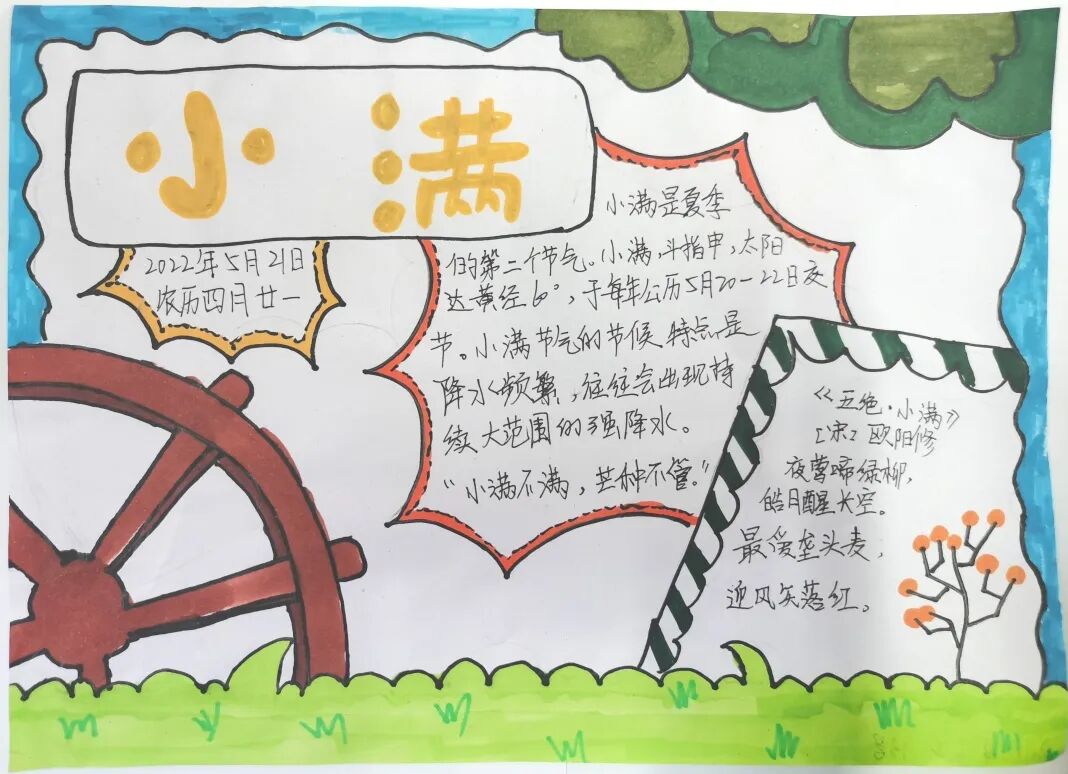 小满
2022年5月21日
农历四月廿一
小满是夏季
的第二个节气。小满，斗指甲，太阳
达黄经60°，于每年公历5月20-22日交
节。小满节气的节候特点是
降水频繁，往往会出现持
续大范围的强降水。
“小满不满，芒种不管。”
《五绝·小满》
[宋] 欧阳修
夜莺啼绿柳，
皓月醒长空。
最爱垄头麦，
迎风笑落红。